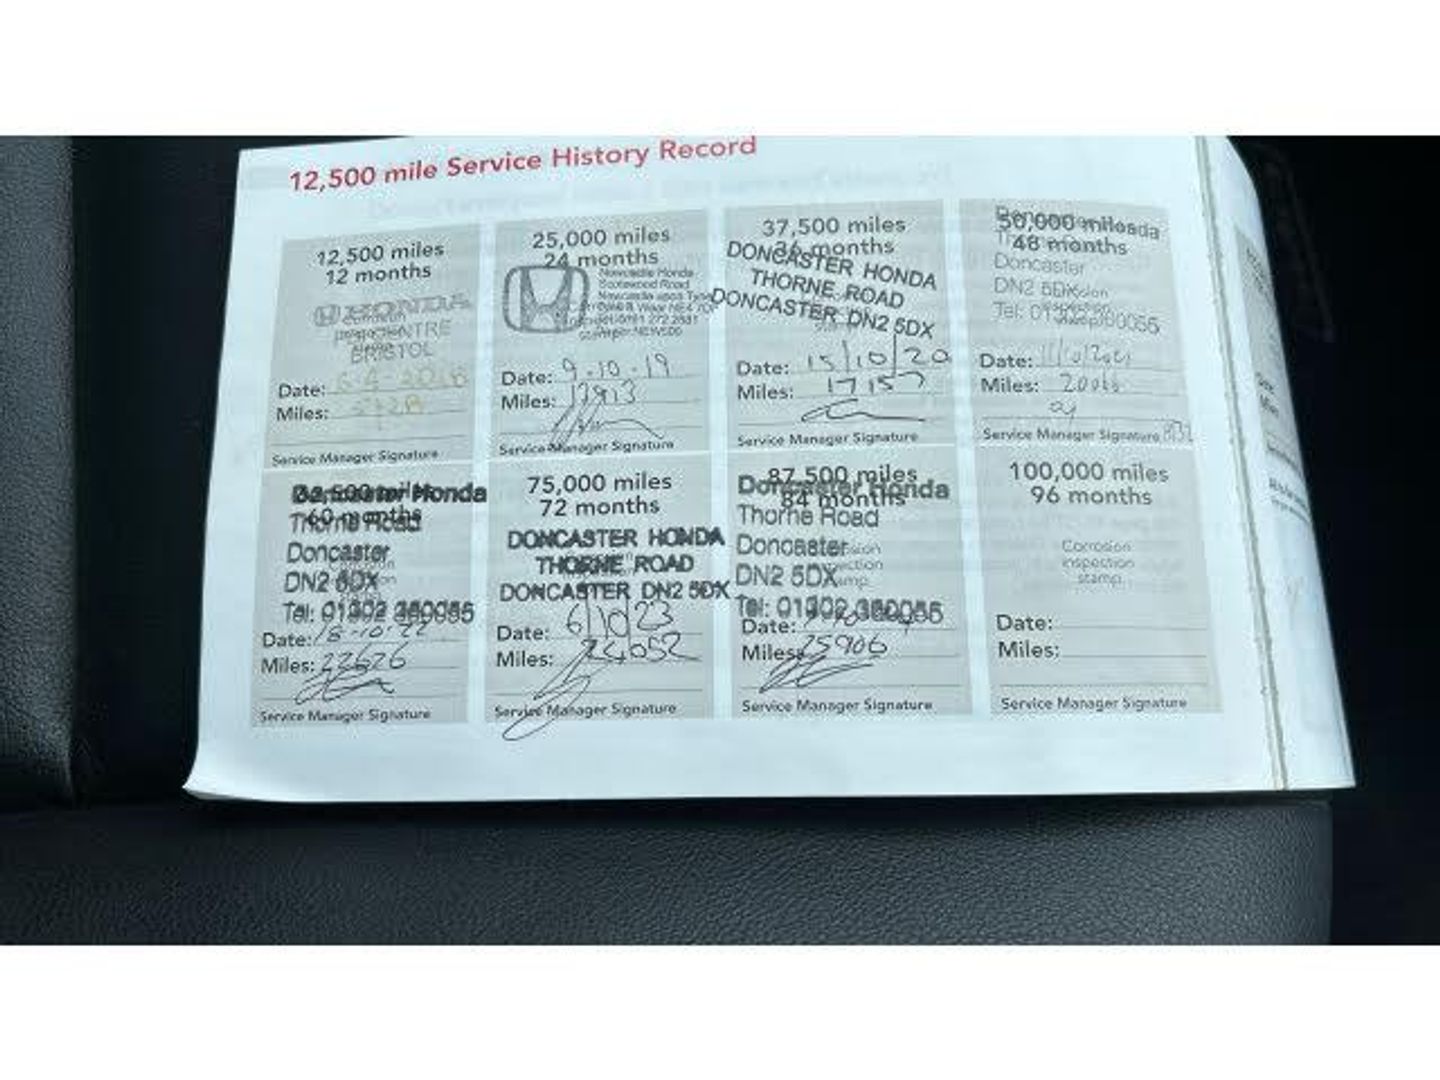 12,500 mile Service History Record
12,500 miles
12 months
HONDA
CENTRE
BRISTOL
Date:
Miles:
Service Manager Signature
25,000 miles
24 months
Newcastle Honda
Scotswood Road
Newcastle upon Tyne
Tyne & Wear NE4 7DF
Date: 9.10.19
Miles: 12913
Service Manager Signature
37,500 miles
36 months
DONCASTER HONDA
THORNE ROAD
DONCASTER DN2 5DX
Date: 15/10/20
Miles: 17157
Service Manager Signature
50,000 miles
48 months
Doncaster
DN2 5DX
Date: 11/10/2021
Miles:
Service Manager Signature
Doncaster Honda
60 months
Thorne Road
Doncaster
DN2 5DX
Tel: 01302 350055
Date: 18-10-22
Miles: 22626
Service Manager Signature
75,000 miles
72 months
DONCASTER HONDA
THORNE ROAD
DONCASTER DN2 5DX
Date: 6/10/23
Miles: 24052
Service Manager Signature
87,500 miles
84 months
Doncaster Honda
Thorne Road
Doncaster
DN2 5DX
Tel: 01302 350055
Date:
Miles: 25906
Service Manager Signature
100,000 miles
96 months
Corrosion
inspection
stamp
Date:
Miles:
Service Manager Signature